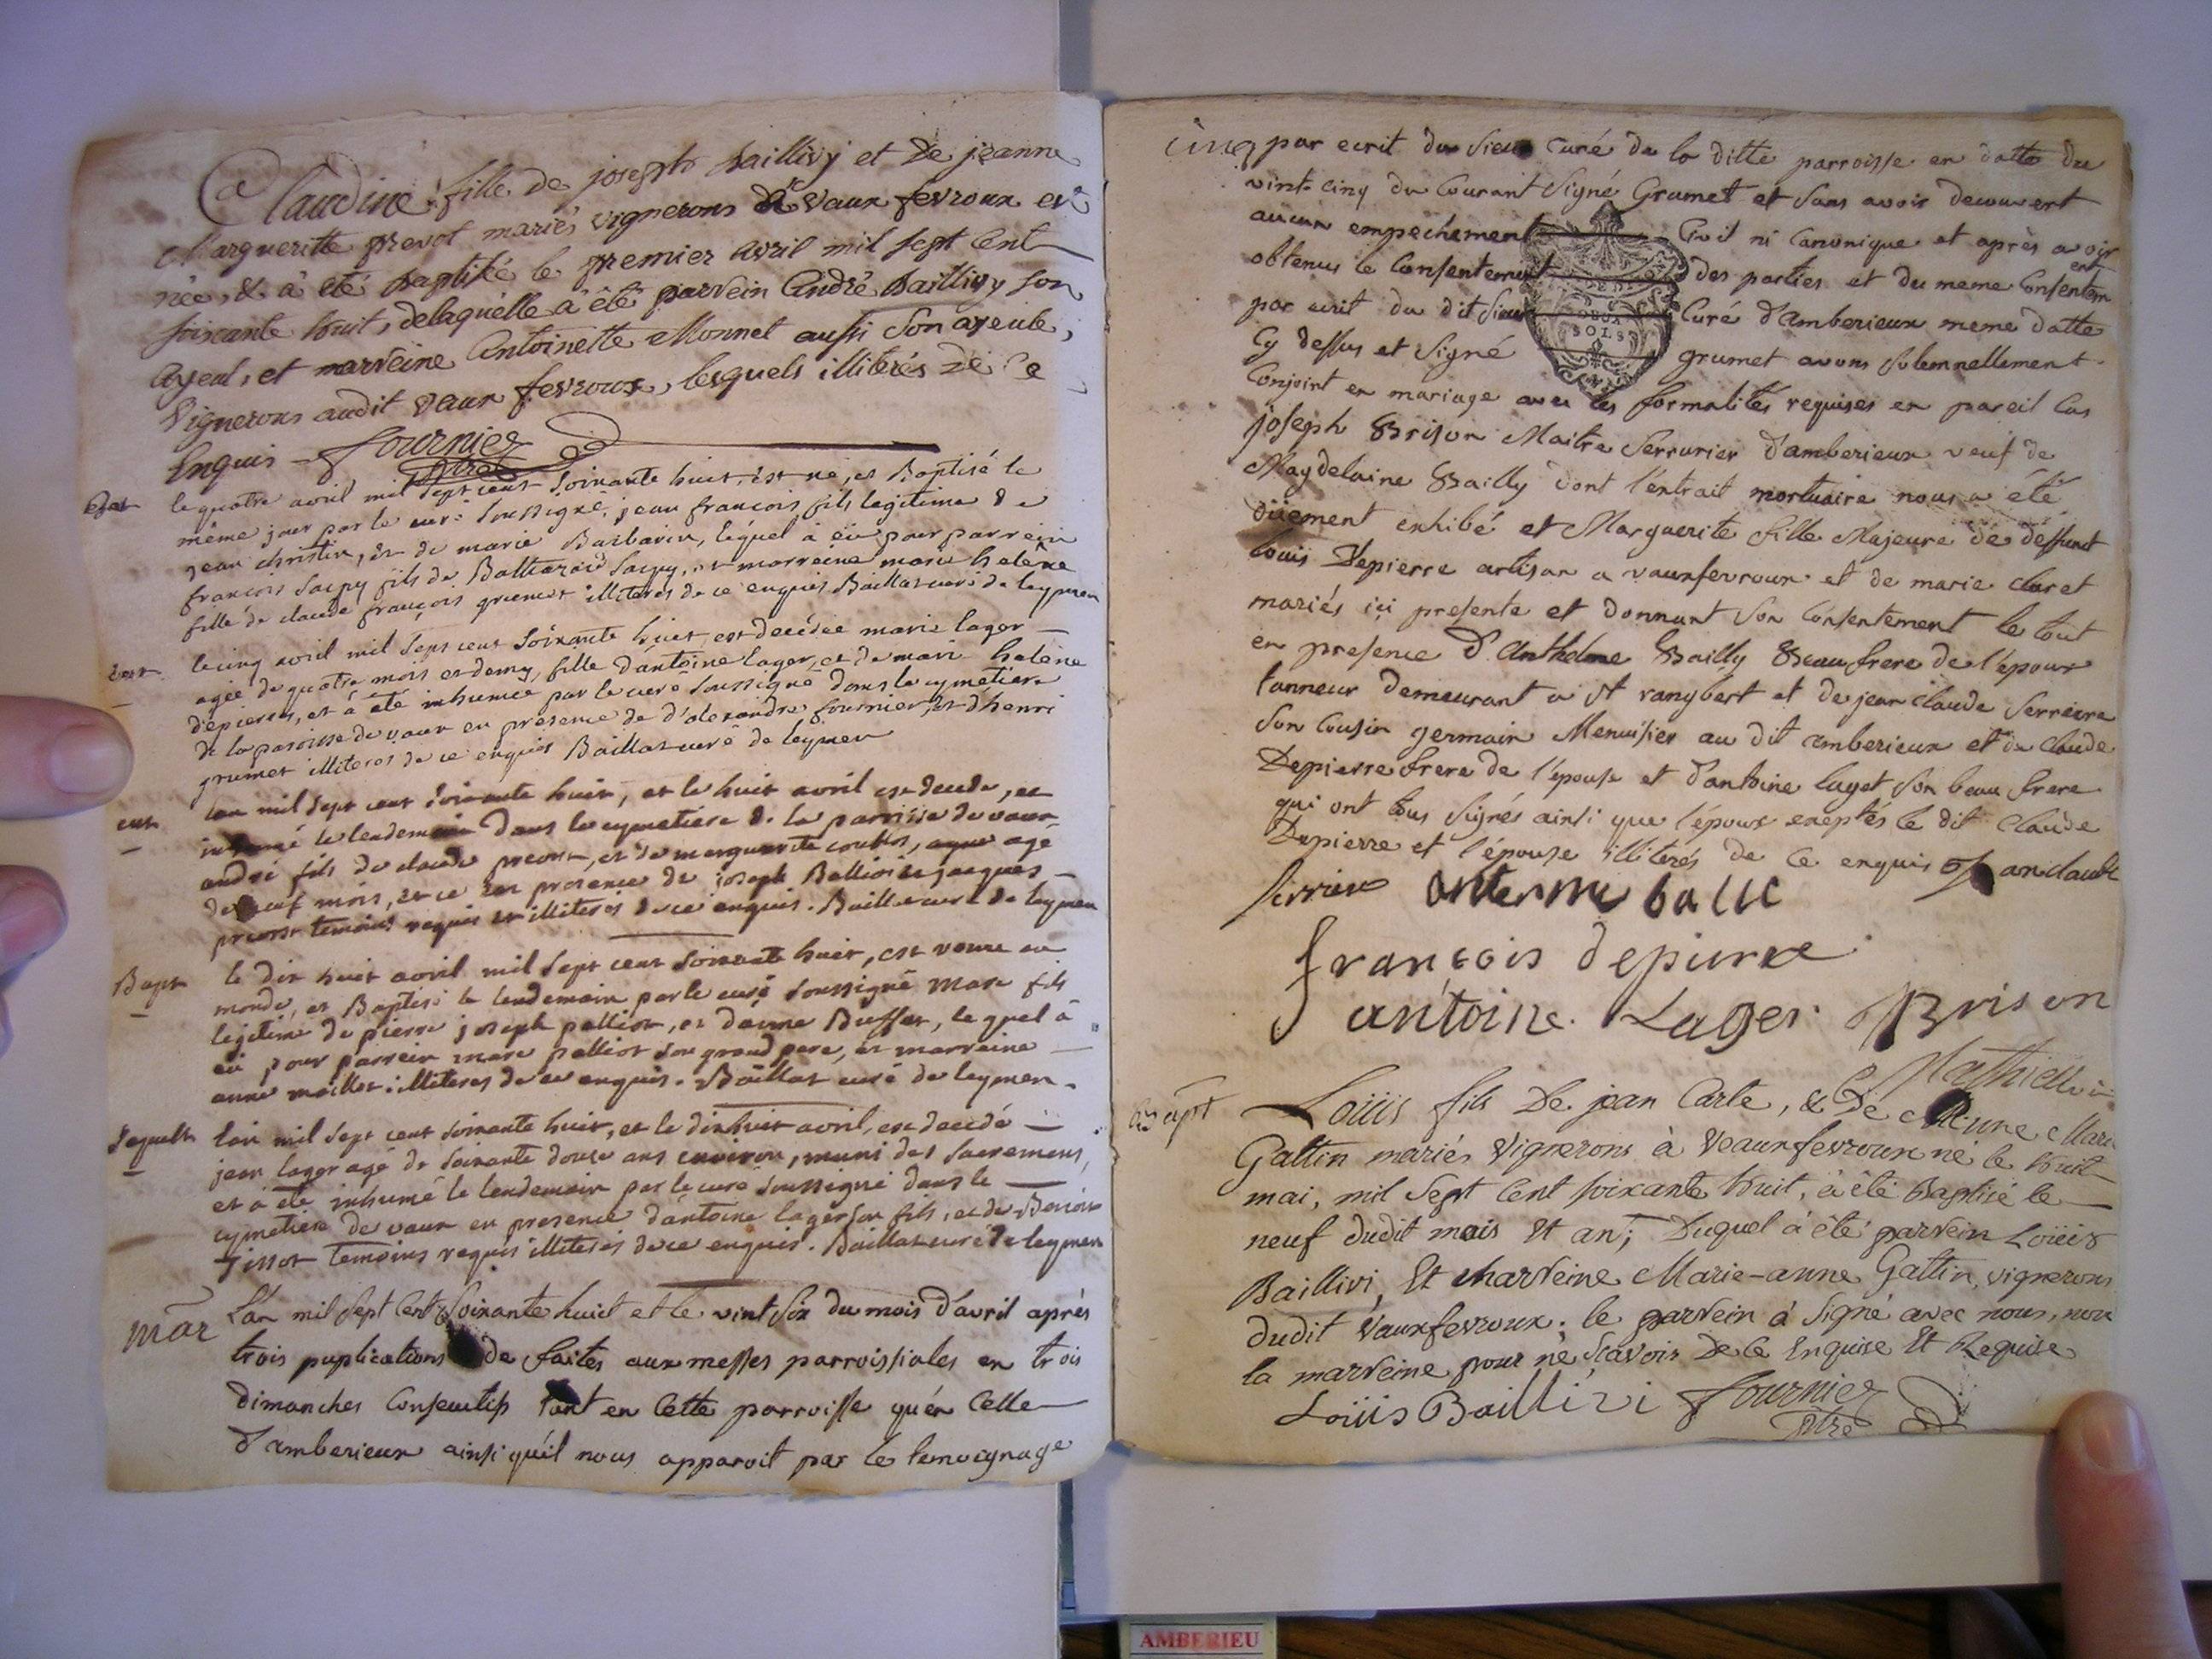 Claudine fille de joseph Baillivy et de jeanne
Margueritte prevot mariés vignerons de vaux fevroux est
née, & à été Baptisée le premier avril mil sept Cent
soixante huit, delaquelle à été parrein André Baillivy son
ayeul, et marreine Antoinette Monnet aussi son ayeule,
Vignerons audit vaux fevroux, lesquels illitérés de Ce
Enquis Fournier
Ptre
Bapt le quatre avril mil sept cent soixante huit, est né, et Baptisé le
même jour par le curé soussigné, jean françois fils legitime de
jean christin, et de marie Barbarin, lequel à eü pour parrein
françois fils de Baltazard et marreine marie helène
fille de claude françois grumet illiteres de ce enquis Baillat curé de leymen
le cinq avril mil sept cent soixante huit, est decédée marie lager
agée de quatre mois et demy, fille d'antoine lager, et de marie helène
depierre, et à été inhumée par le curé soussigné dans le cymetiere
de la paroisse de vaux en presence de d'alexandre fournier, et d'henri
grumet illiteres de ce enquis Baillat curé de leymen
lan mil sept cent soixante huit, et le huit avril est decedé, et
inhumé le lendemain dans le cymetiere de la parroisse de vaux
andré fils de claude prevost, et de marguerite agé
de neuf mois, et ce en presence de joseph et jacques
prevost temoins requis et illiteres de ce enquis. Baillat curé de leymen
Bapt le dix huit avril mil sept cent soixante huit, est venu au
monde, et Baptisé le lendemain par le curé soussigné marc fils
legitime de pierre joseph palliot, et danne Buffet, le quel à
eü pour parrein marc palliot son grand pere, et marreine
anne maillet illiteres de ce enquis. Baillat curé de leymen.
lan mil sept cent soixante huit, et le dixhuit avril, est decedé
jean lager agé de soixante douze ans environ, muni des sacremens,
et à été inhumé le lendemain par le curé soussigné dans le
cymetiere de vaux en presence dantoine lager son fils, et de Benoit
tissot temoins requis illiteres de ce enquis. Baillat curé de leymen
mar L'an mil sept Cent soixante huit et le vint six du mois d'avril après
trois puplications de faites aux messes parroissiales en trois
dimanches Consecutifs tant en Cette parroisse qu'en Celle
d'amberieux ainsi qu'il nous apparoit par le temoignage
cinq par ecrit du sieur Curé de la ditte parroisse en datte du
vint-cinq du Courant Signé Grumet et sans avoir decouvert
aucun empechement Civil ni Canonique et après avoir
obtenus le Consentement des parties et du meme Consentement
par ecrit du dit sieur Curé d'amberieux meme datte
Cy dessus et signé grumet avons solemnellement
Conjoint en mariage avec les formalités requises en pareil Cas
joseph Brison Maitre Serrurier d'amberieux veuf de
Magdelaine Bailly dont l'extrait mortuaire nous a été
düement exhibé et Marguerite fille Majeure de deffunt
louis Depierre artisan a vauxfevroux et de marie claret
mariés ici presente et donnant son Consentement le tout
en presence d'Anthelme Bailly Beaufrere de l'epoux
tanneur demeurant a St rangbert et de jean claude Serriere
son Cousin germain Menuisier au dit amberieux et de claude
Depierre frere de l'épouse et d'antoine laget son beau frere
qui ont tous signés ainsi que l'époux exeptés le dit Claude
Depierre et l'épouse illiterés de Ce enquis anclaude
françois depierre
antoine Lager Brison
Bapt Loüis fils De jean Carle, & de Marie
Gattin mariés Vignerons à Veauxfevroux né le huit
mai, mil Sept Cent soixante huit, à été Baptisé le
neuf dudit mois et an; Duquel à été parrein Loüis
Baillivi, Et Marreine Marie-anne Gattin, vignerons
dudit Vauxfevroux. le parrein à Signé avec nous, non
la marreine pour ne Scavoir De Ce Enquise Et Requise
Loüis Baillivi Fournier
Ptre
AMBERIEU